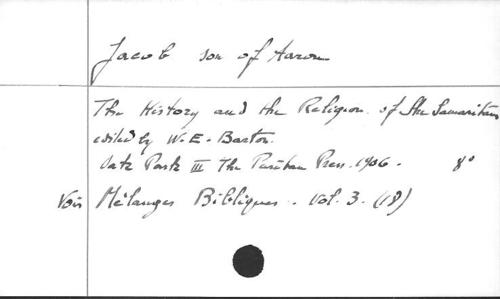 Jacob son of Aaron
The History and the Religion of the Samaritans
edited by W.E. Barton.
Oak Park Ill The Puritan Press. 1906. 8°
Voir Mélanges Bibliques. Vol. 3. (18)